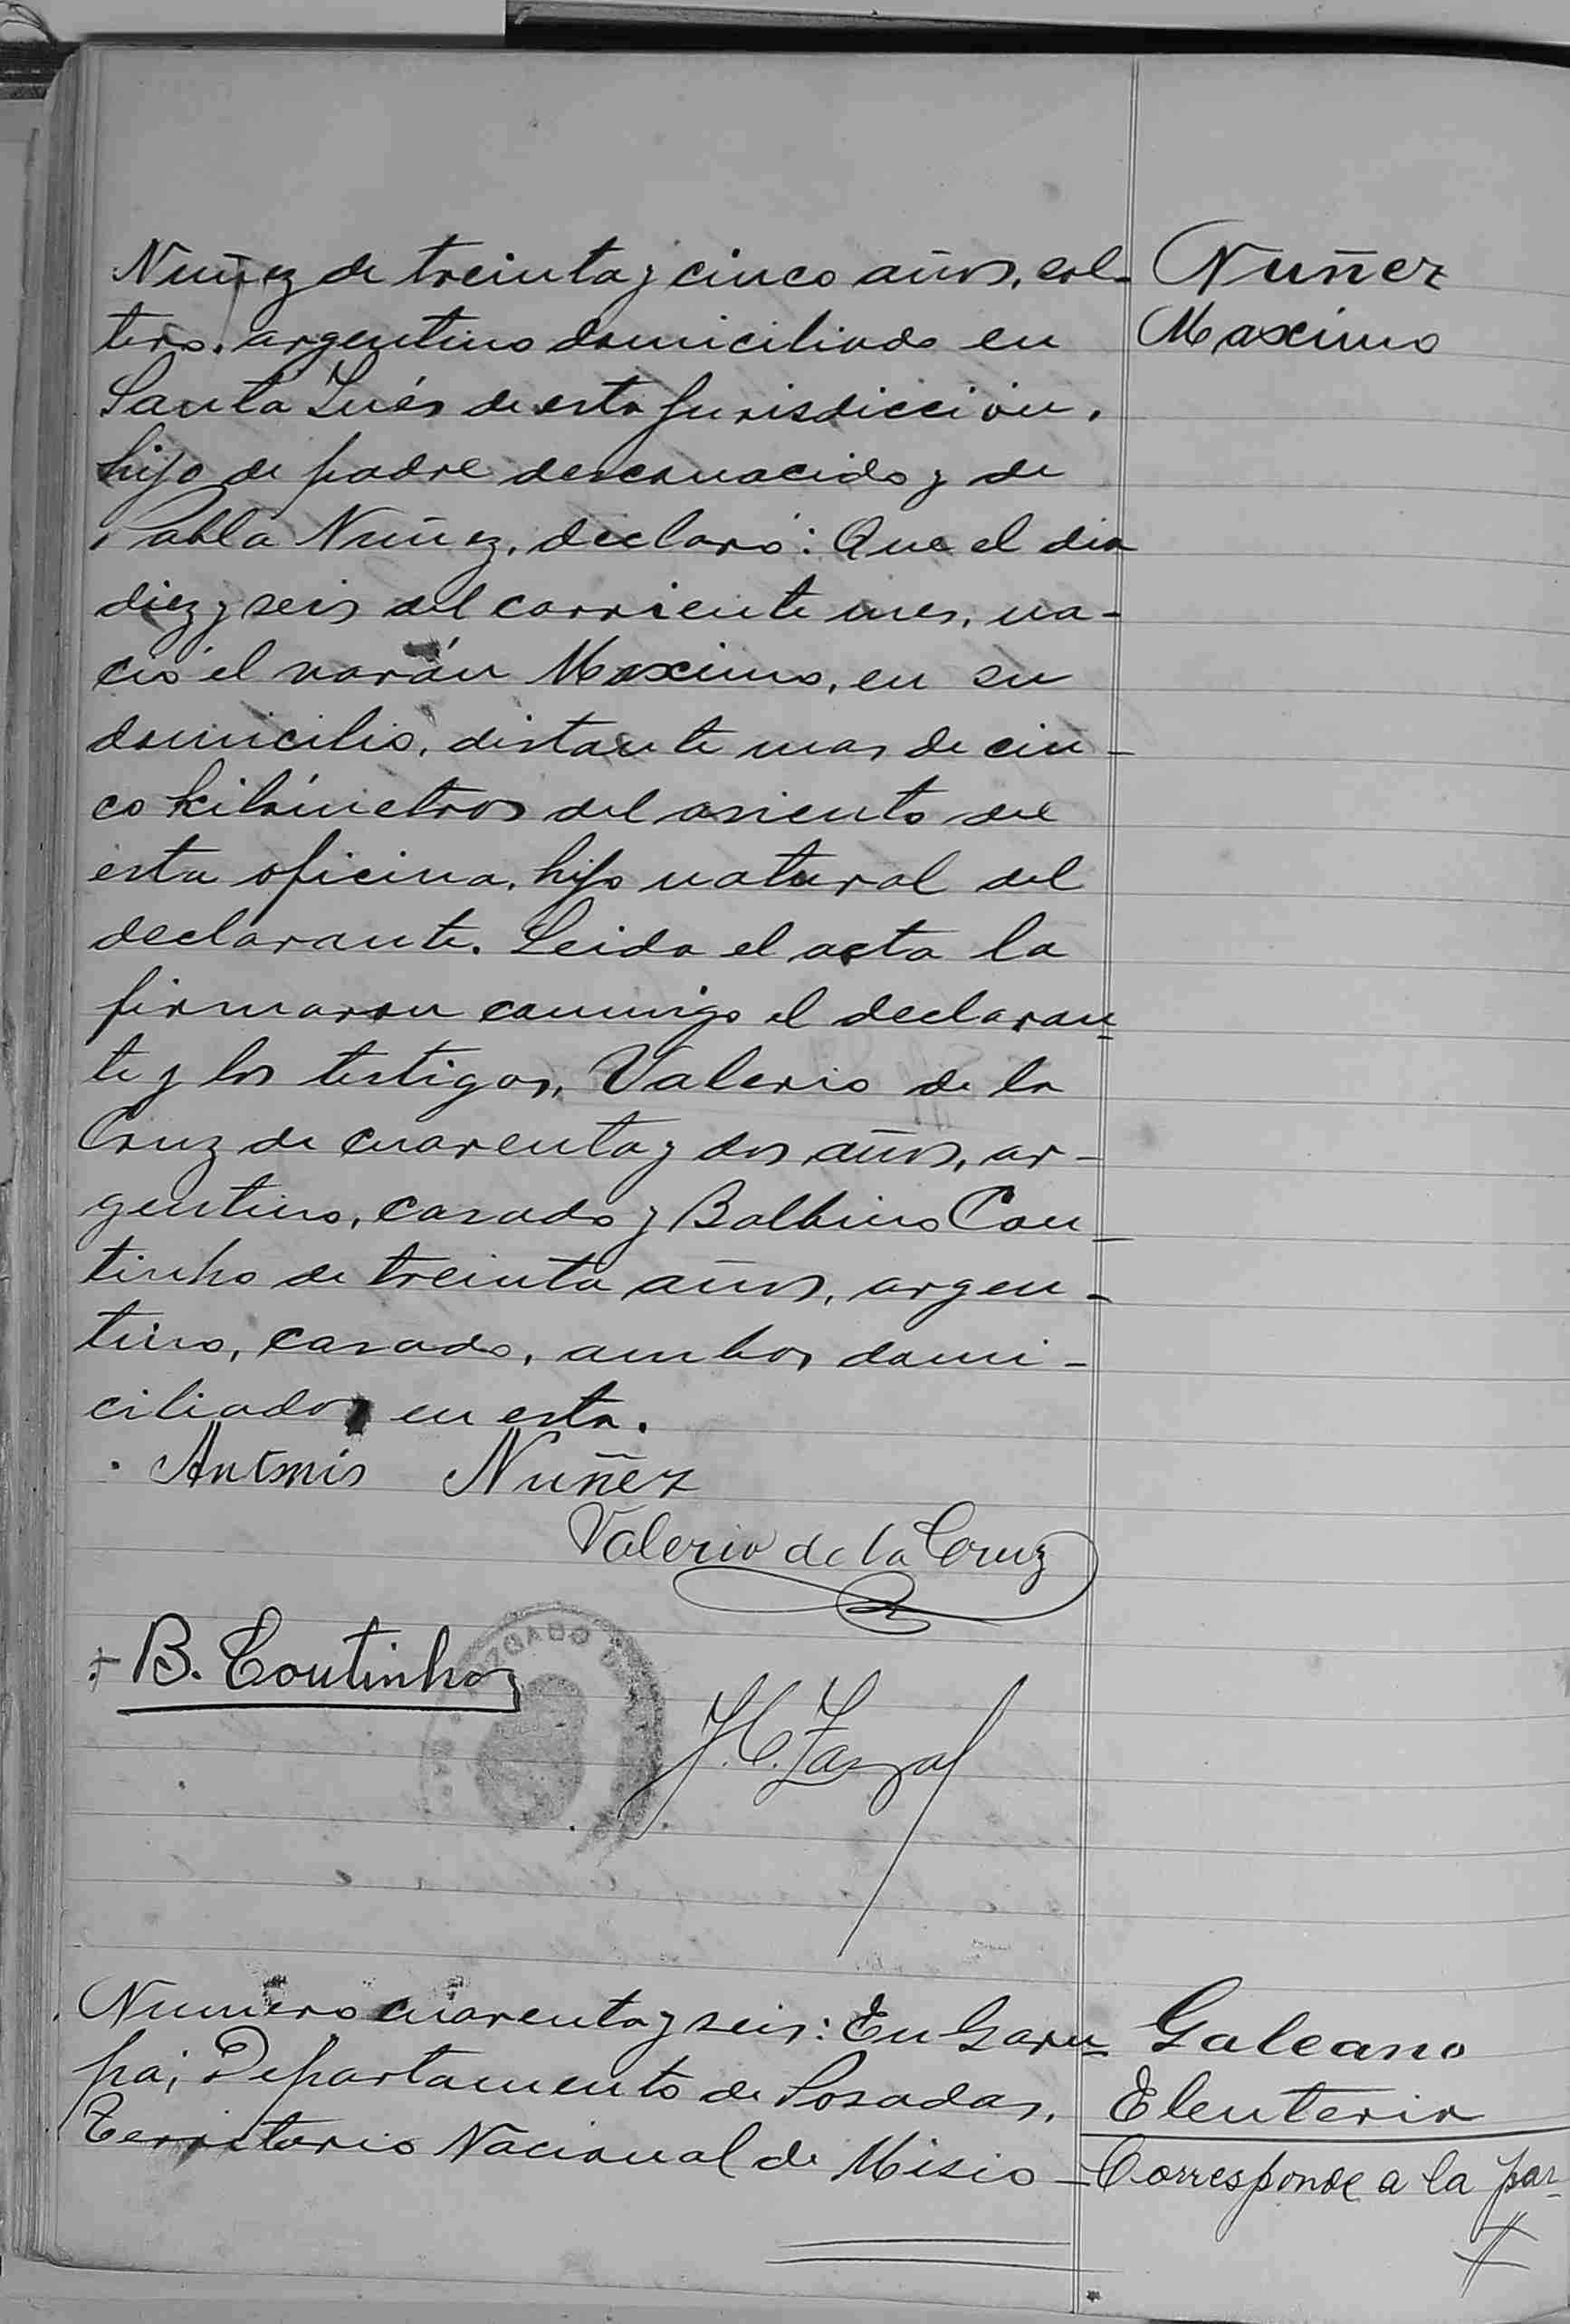 Nuñez de treinta y cinco años, sol-
tero, argentino domiciliado en
Santa Inés de esta Jurisdicción,
hijo de padre desconocido y de
Pabla Nuñez, declaró: Que el dia
diez y seis del corriente mes, na-
ció el varón Maximo, en su
domicilio, distante mas de cin-
co kilómetros del asiento de
esta oficina, hijo natural del
declarante. Leida el acta la
firmaron conmigo el declaran-
te y los testigos, Valerio de la
Cruz de cuarenta y dos años, ar-
gentino, casado y Balbino Cou-
tinho de treinta años, argen-
tino, casado, ambos domi-
ciliados en esta.
Antonio Nuñez
Valerio de la Cruz
B. Coutinho
JUZGADO D
Nuñez
Maximo
Numero cuarenta y seis: En Garu-
pá, Departamento de Posadas,
Territorio Nacional de Misio-
Galeano
Eleuteria
Corresponde a la par-